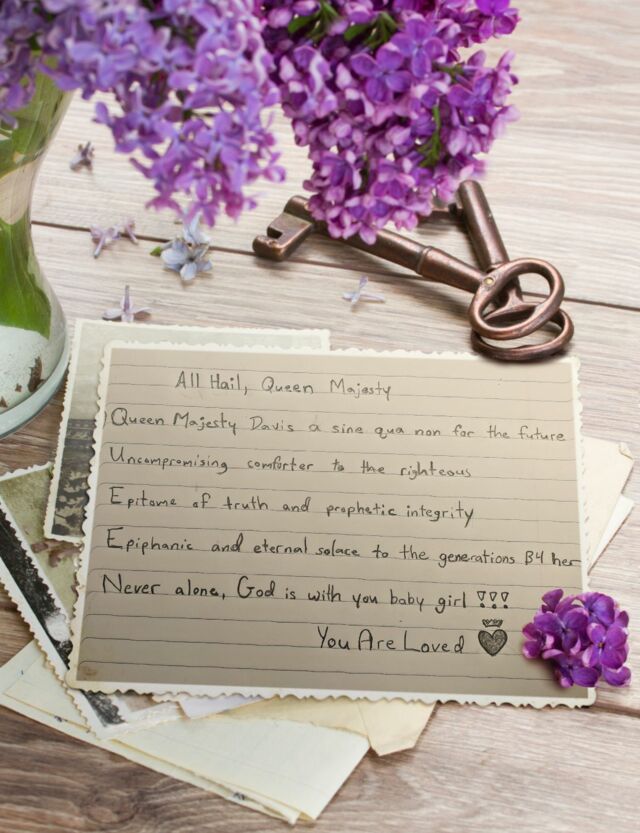 All Hail, Queen Majesty
Queen Majesty Davis a sine qua non for the future
Uncompromising comforter to the righteous
Epitome of truth and prophetic integrity
Epiphanic and eternal solace to the generations B4 her
Never alone, God is with you baby girl !!!
You Are Loved